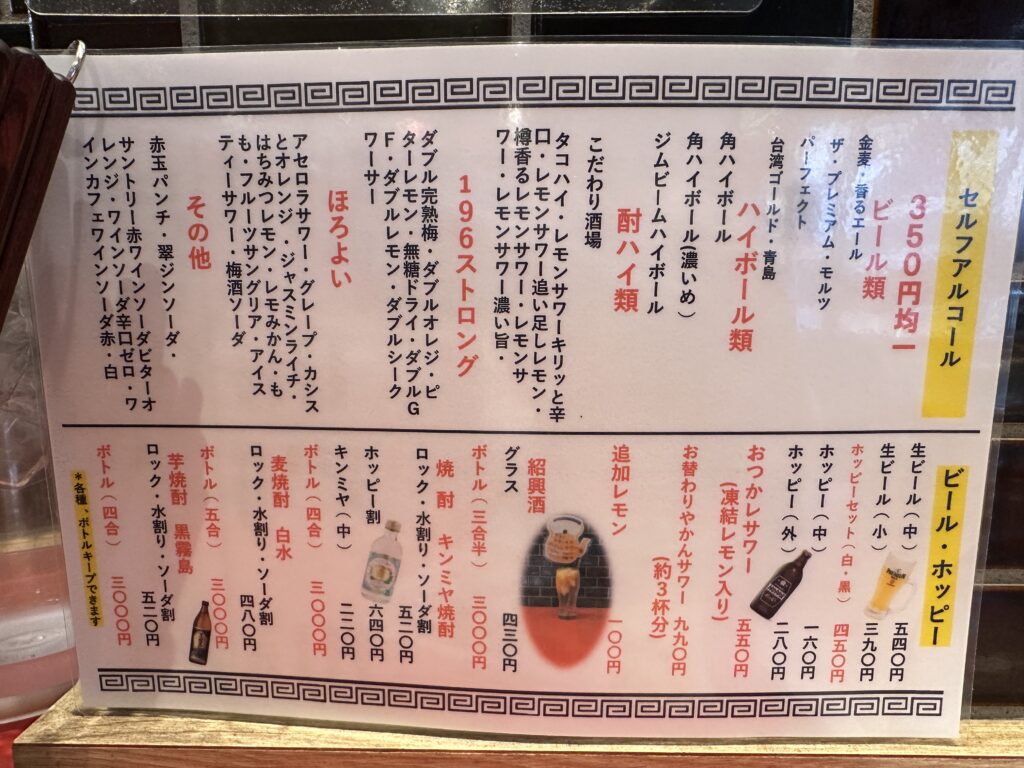 セルフアルコール
350円均一
ビール類
金麦・香るエール
ザ・プレミアム・モルツ
パーフェクト
台湾ゴールド・青島
ハイボール類
角ハイボール
角ハイボール(濃いめ)
ジムビームハイボール
酎ハイ類
こだわり酒場
タコハイ・レモンサワーキリッと辛
口・レモンサワー追い足しレモン・
樽香るレモンサワー・レモンサ
ワー・レモンサワー濃い旨・
196ストロング
ダブル完熟梅・ダブルオレジ・ピ
ターレモン・無糖ドライ・ダブルG
F・ダブルレモン・ダブルシーク
ワーサー
ほろよい
アセロラサワー・グレープ・カシス
とオレンジ・ジャスミンライチ・
はちみつレモン・レモみかん・も
も・フルーツサングリア・アイス
ティーサワー・梅酒ソーダ
その他
赤玉パンチ・翠ジンソーダ・
サントリー赤ワインソーダビターオ
レンジ・ワインソーダ辛口ゼロ・ワ
インカフェワインソーダ赤・白
ビール・ホッピー
生ビール(中) 五四〇円
生ビール(小) 三九〇円
ホッピーセット(白・黒) 四五〇円
ホッピー(中) 一六〇円
ホッピー(外) 二八〇円
おつかレサワー
(凍結レモン入り) 五五〇円
お替わりやかんサワー 九九〇円
(約3杯分)
追加レモン 一〇〇円
紹興酒
グラス 四三〇円
ボトル(三合半) 三〇〇〇円
焼酎 キンミヤ焼酎
ロック・水割り・ソーダ割 五二〇円
ホッピー割 六四〇円
キンミヤ(中) 二二〇円
ボトル(四合) 三〇〇〇円
麦焼酎 白水
ロック・水割り・ソーダ割 四八〇円
ボトル(五合) 三〇〇〇円
芋焼酎 黒霧島
ロック・水割り・ソーダ割 五二〇円
ボトル(四合) 三〇〇〇円
*各種、ボトルキープできます